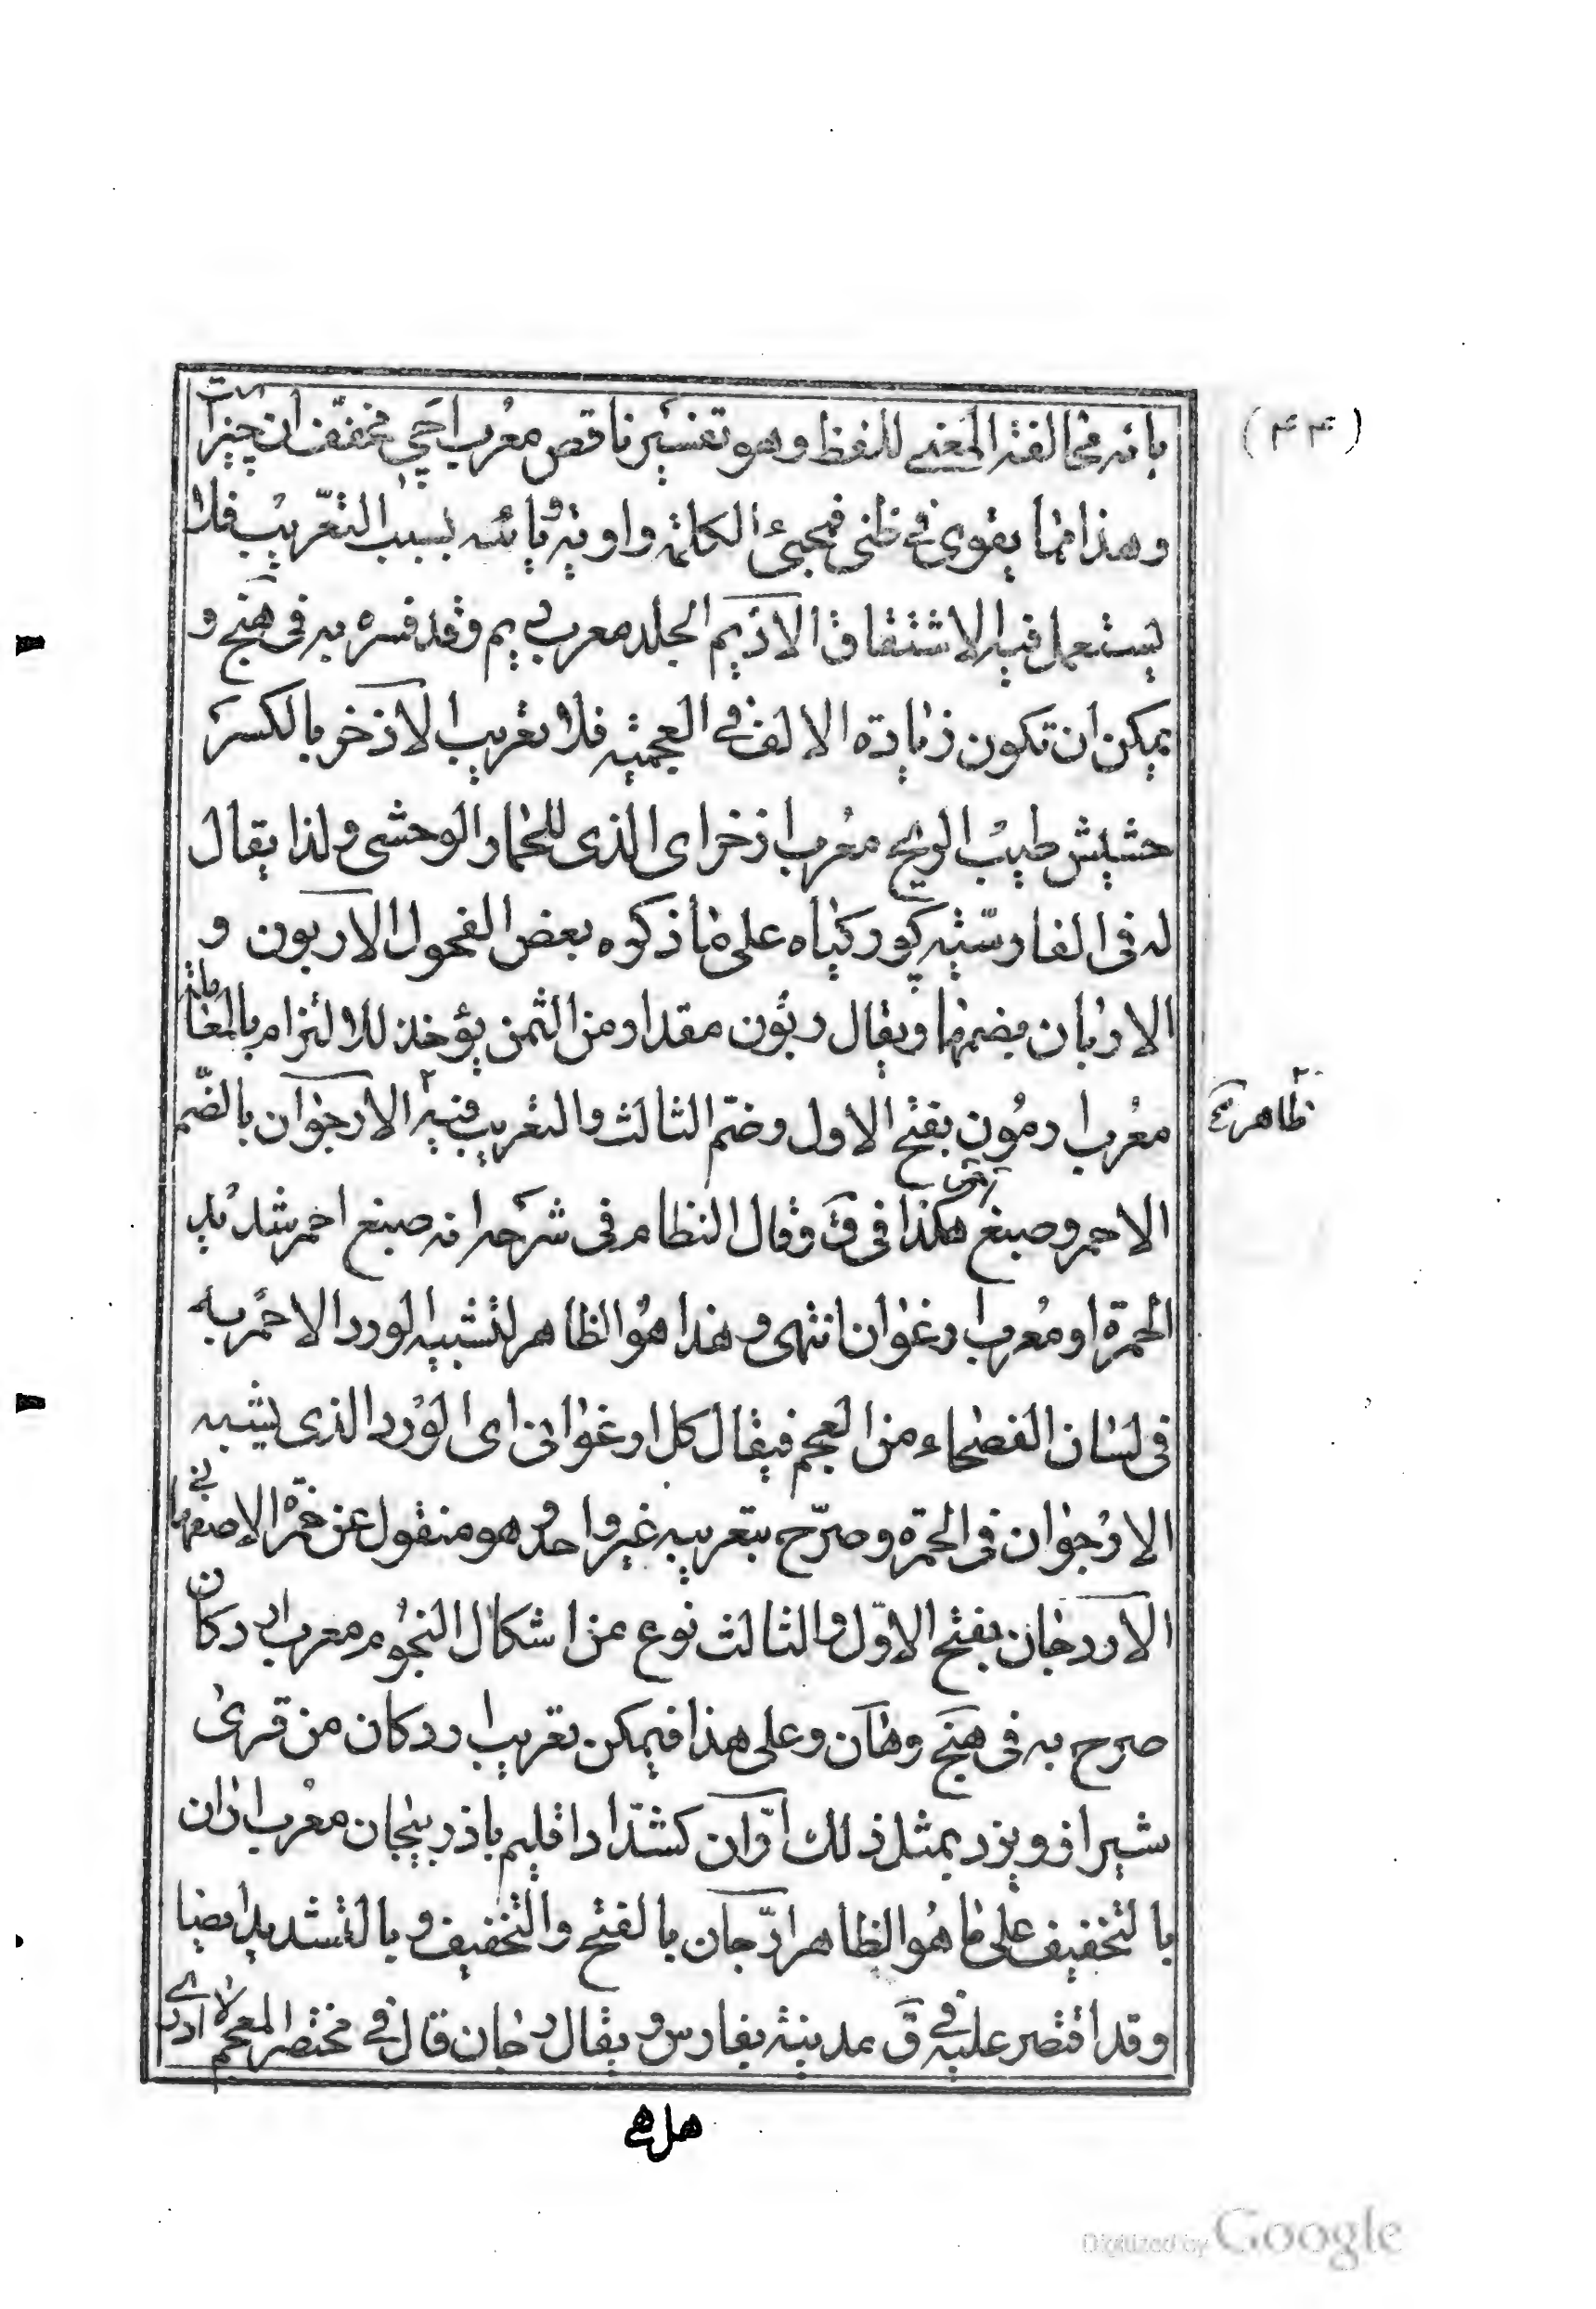 (۴۴)
بانه مخالفة المعنى للفظ وهو تفسير ناقص معرب اچي مخفف ان چيزات
وهذا مما يقوى في ظني فمجىء الكلمة واوية ويائيه بسبب التعريب فلا
يستعمل فيه الاشتقاق الاديم الجلد معرب اديم وقد فسره به في هنج و
يمكن ان تكون زيادة الالف في العجمية فلا تعريب الاذخر بالكسر
حشيش طيب الريح معرب اذخر اى الذى للحمار الوحشى ولذا يقال
له في الفارسية كورگياه على ما ذكره بعض الفحول الاربون و
الاربان بضمهما ويقال ربون مقدار من الثمن يؤخذ للالتزام بالمعاملة
معرب ارمون بفتح الاول وضم الثالث والتعريب فيه ٢ الارجوان بالضم
٢ ظاهر
الاحمر وصبغ هكذا في ق وقال النظام في شرحه انه صبغ احمر شديد
الحمرة او معرب ارغوان انتهى وهذا هو الظاهر لتشبيه الورد الاحمر به
في لسان الفصحاء من العجم فيقال كل ارغوانى اى الورد الذى يشبه
الارجوان في الحمرة وصرح بتعريبه غير واحد وهو منقول عن حمزة الاصفهانى
الاردجان بفتح الاول والثالث نوع من اشكال النجوم معرب اردكان
صرح به في هنج وهان وعلى هذا فيمكن تعريب اردكان من قرى
شيراز ويزد بمثل ذلك ارّان كشدّاد اقليم باذربيجان معرب اران
بالتخفيف على ما هو الظاهر ارّجان بالفتح والتخفيف وبالتشديد ايضا
وقد اقتصر عليه في ق مدينة بفارس ويقال رجان قال في مختصر المعجم لا ادرى
هل هي
Digitized by Google